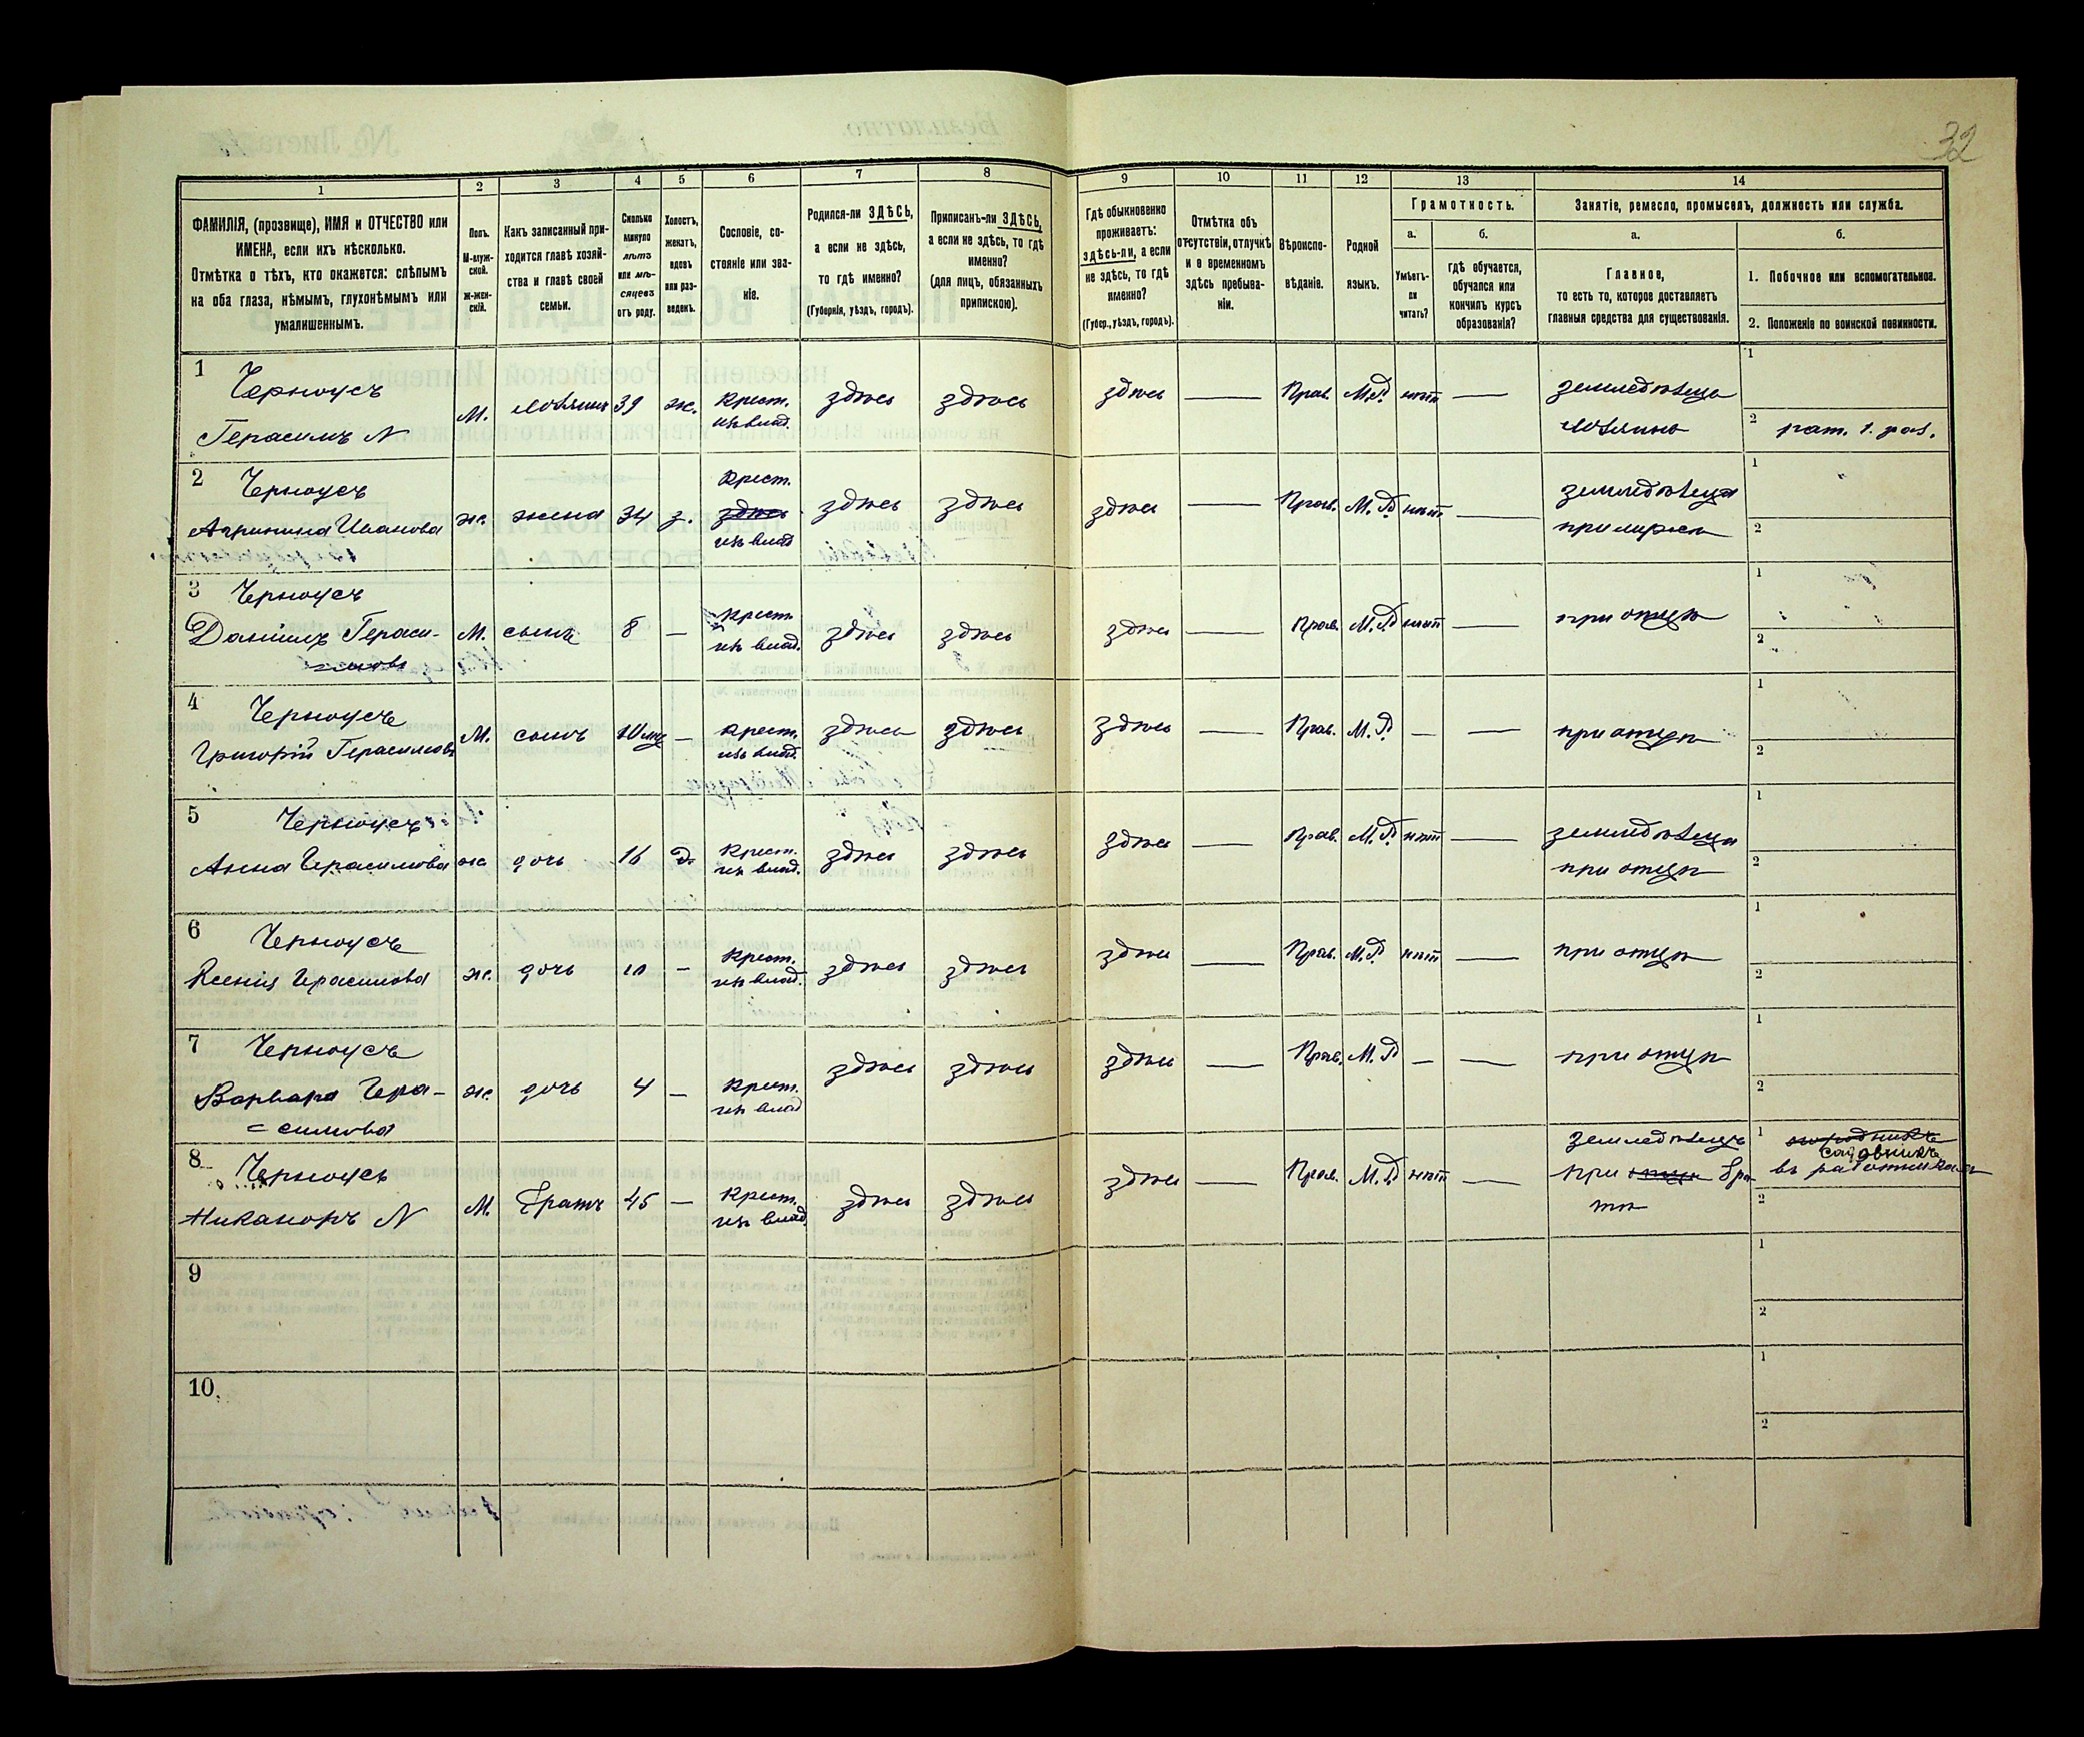 32
1
2
3
4
5
6
7
8
9
10
11
12
13
14
ФАМИЛІЯ, (прозвище), ИМЯ и ОТЧЕСТВО или
ИМЕНА, если ихъ нѣсколько.
Отмѣтка о тѣхъ, кто окажется: слѣпымъ
на оба глаза, нѣмымъ, глухонѣмымъ или
умалишеннымъ.
Полъ.
М-муж-
ской.
ж-жен-
скій.
Какъ записанный при-
ходится главѣ хозяй-
ства и главѣ своей
семьи.
Сколько
минуло
лѣтъ
или мѣ-
сяцевъ
отъ роду.
Холостъ,
женатъ,
вдовъ
или раз-
веденъ.
Сословіе, со-
стояніе или зва-
ніе.
Родился-ли ЗДѢСЬ,
а если не здѣсь,
то гдѣ именно?
(Губернія, уѣздъ, городъ).
Приписанъ-ли ЗДѢСЬ,
а если не здѣсь, то гдѣ
именно?
(для лицъ, обязанныхъ
припискою).
Гдѣ обыкновенно
проживаетъ:
здѣсь-ли, а если
не здѣсь, то гдѣ
именно?
(Губер., уѣздъ, городъ).
Отмѣтка объ
отсутствіи, отлучкѣ
и о временномъ
здѣсь пребыва-
ніи.
Вѣроиспо-
вѣданіе.
Родной
языкъ.
Грамотность.
а.
Умѣетъ-
ли
читать?
б.
гдѣ обучается,
обучался или
кончилъ курсъ
образованія?
Занятіе, ремесло, промыселъ, должность или служба.
а.
Главное,
то есть то, которое доставляетъ
главныя средства для существованія.
б.
1. Побочное или вспомогательное.
2. Положеніе по воинской повинности.
1
Черноусъ
Герасимъ N
М. 39 ж. крест. изъ влад. здѣсь здѣсь здѣсь — Прав. М.Р. нѣтъ —
1
2 рат. 1. раз.
2
Черноусъ
Агрипина Иванова
ж. жена 34 з. крест. здѣсь изъ влад. здѣсь здѣсь здѣсь — Прав. М.Р. нѣтъ —
1
2
3
Черноусъ
Даніилъ Гераси-
мовъ
М. сынъ 8 — крест. изъ влад. здѣсь здѣсь здѣсь — Прав. М.Р. нѣтъ — при отцѣ
1
2
4
Черноусъ
Григорій Герасимовъ
М. сынъ 10 мц — крест. изъ влад. здѣсь здѣсь здѣсь — Прав. М.Р. — — при отцѣ
1
2
5
Черноусъ
Анна Герасимова
ж. дочь 16 д. крест. изъ влад. здѣсь здѣсь здѣсь — Прав. М.Р. нѣтъ —
при отцѣ
1
2
6
Черноусъ
Ксенія Герасимова
ж. дочь 10 — крест. изъ влад. здѣсь здѣсь здѣсь — Прав. М.Р. нѣтъ — при отцѣ
1
2
7
Черноусъ
Варвара Гера-
=симова
ж. дочь 4 — крест. изъ влад. здѣсь здѣсь здѣсь — Прав. М.Р. — — при отцѣ
1
2
8
Черноусъ
Никаноръ N
М. братъ 45 — крест. изъ влад. здѣсь здѣсь здѣсь — Прав. М.Р. нѣтъ —
земледѣлецъ
при отцѣ бра-
тѣ
1 огородникъ
садовникъ
въ работникахъ
2
9
1
2
10.
1
2